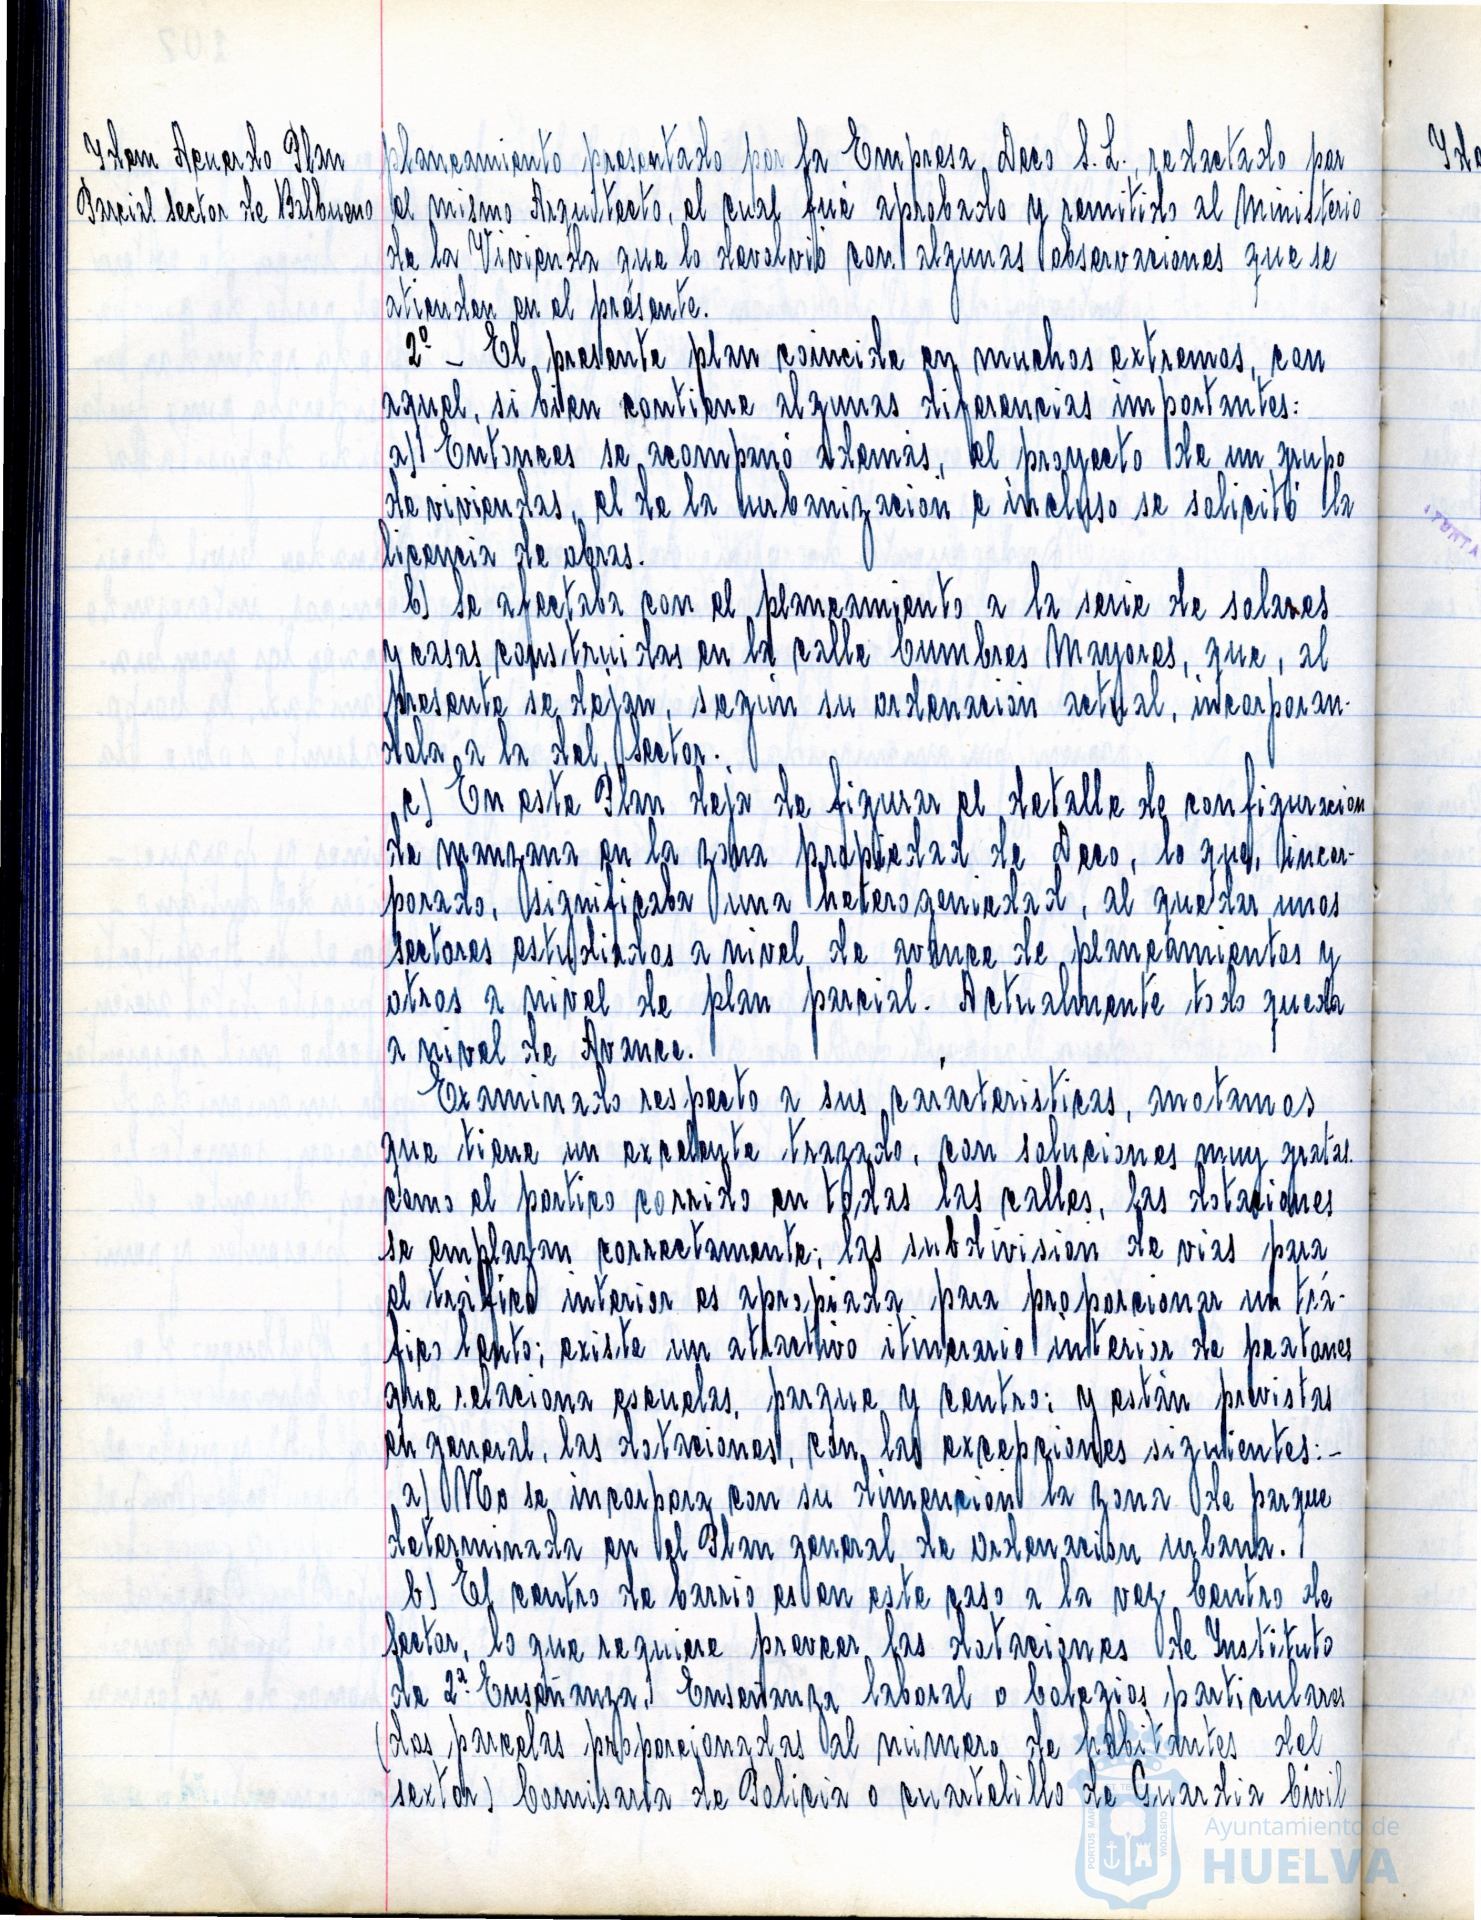 Idem Acuerdo Plan
Parcial Sector de Balbueno
planeamiento presentado por la Empresa Deco S. L., redactado por
el mismo Arquitecto, el cual fué aprobado y remitido al Ministerio
de la Vivienda que lo devolvió con algunas observaciones que se
atienden en el presente.
2º - El presente plan coincide en muchos extremos, con
aquel, si bien contiene algunas diferencias importantes:
a) Entonces se acompañó además, el proyecto de un grupo
de viviendas, el de la urbanización e incluso se solicitó la
licencia de obras.
b) Se afectaba con el planeamiento a la serie de solares
y casas construidas en la calle Cumbres Mayores, que, al
presente se dejan, según su ordenación actual, incorporan-
dola a la del Sector.
c) En este Plan deja de figurar el detalle de configuración
de manzana en la zona propiedad de Deco, lo que, incor-
porado, significaba una heterogeniedad, al quedar unos
sectores estudiados a nivel de avance de planeamientos y
otros a nivel de plan parcial. Actualmente todo queda
a nivel de Avance.
Examinado respecto a sus caracteristicas, anotamos
que tiene un excelente trazado, con soluciones muy gratas.
como el portico corrido en todas las calles, las dotaciones
se emplazan correctamente; las subdivisión de vias para
el tráfico interior es apropiada para proporcionar un trá-
fico lento; existe un atractivo itinerario interior de peatones
que relaciona escuelas, parque y centro; y están previstas
en general, las dotaciones, con las excepciones siguientes:-
a) No se incorpora con su dimención la zona de parque
determinada en el Plan general de ordenación urbana.
b) El centro de barrio es en este caso a la vez Centro de
Sector, lo que requiere preveer las dotaciones de Instituto
de 2ª Enseñanza, Enseñanza laboral o Colegios particulares
(dos parcelas proporcionadas al número de habitantes del
sextor) Comisaría de Policia o cuartelillo de Guardia Civil
PORTUS MARIS
ET TERRAE
CUSTODIA
Ayuntamiento de
HUELVA